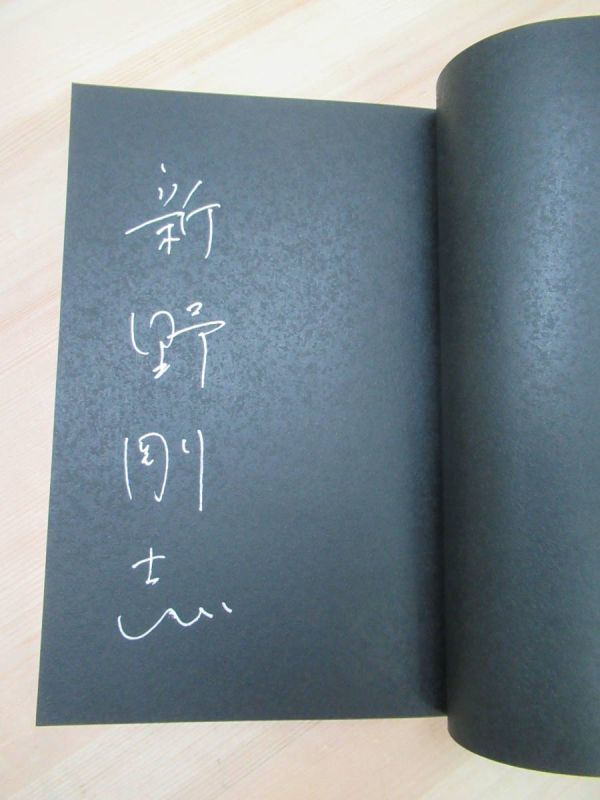 新野剛志